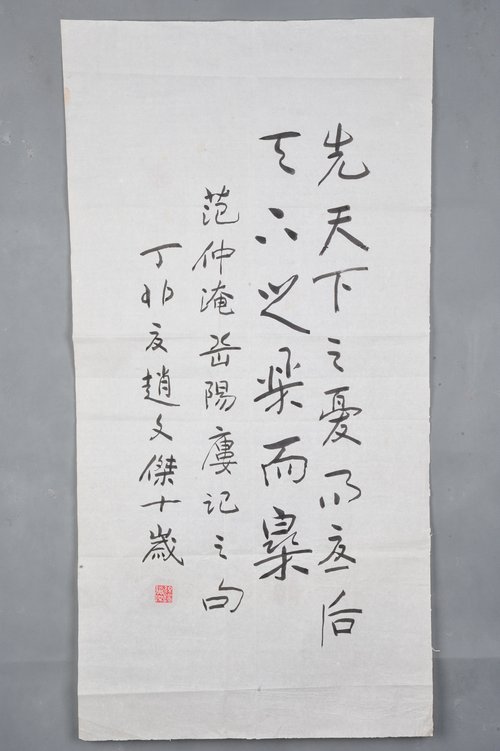 先天下之憂而憂后
天下之樂而樂
范仲淹岳陽廔記之句
丁卯夏趙文傑十歲